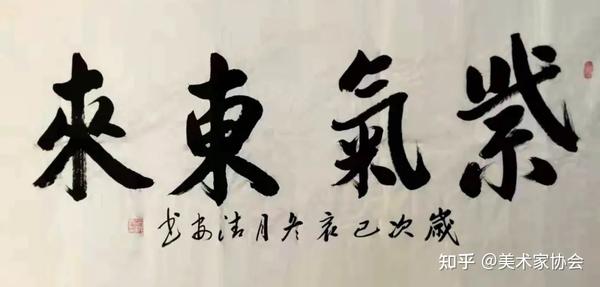 紫氣東來
歲次己亥冬月安书
知乎 @美术家协会